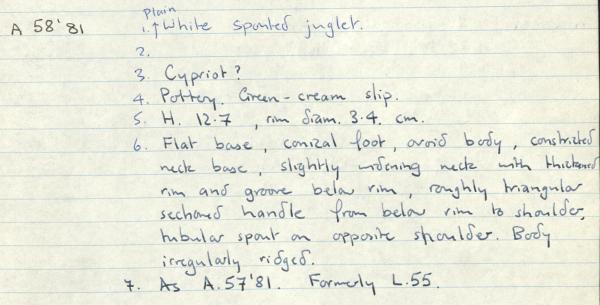 Plain
A 58'81 1. ↑White spouted juglet.
2.
3. Cypriot?
4. Pottery. Green-cream slip.
5. H. 12.7, rim diam. 3.4. cm.
6. Flat base, conical foot, ovoid body, constricted
neck base, slightly widening neck with thickened
rim and groove below rim, roughly triangular
sectioned handle from below rim to shoulder,
tubular spout on opposite shoulder. Body
irregularly ridged.
7. As A.57'81. Formerly L.55.